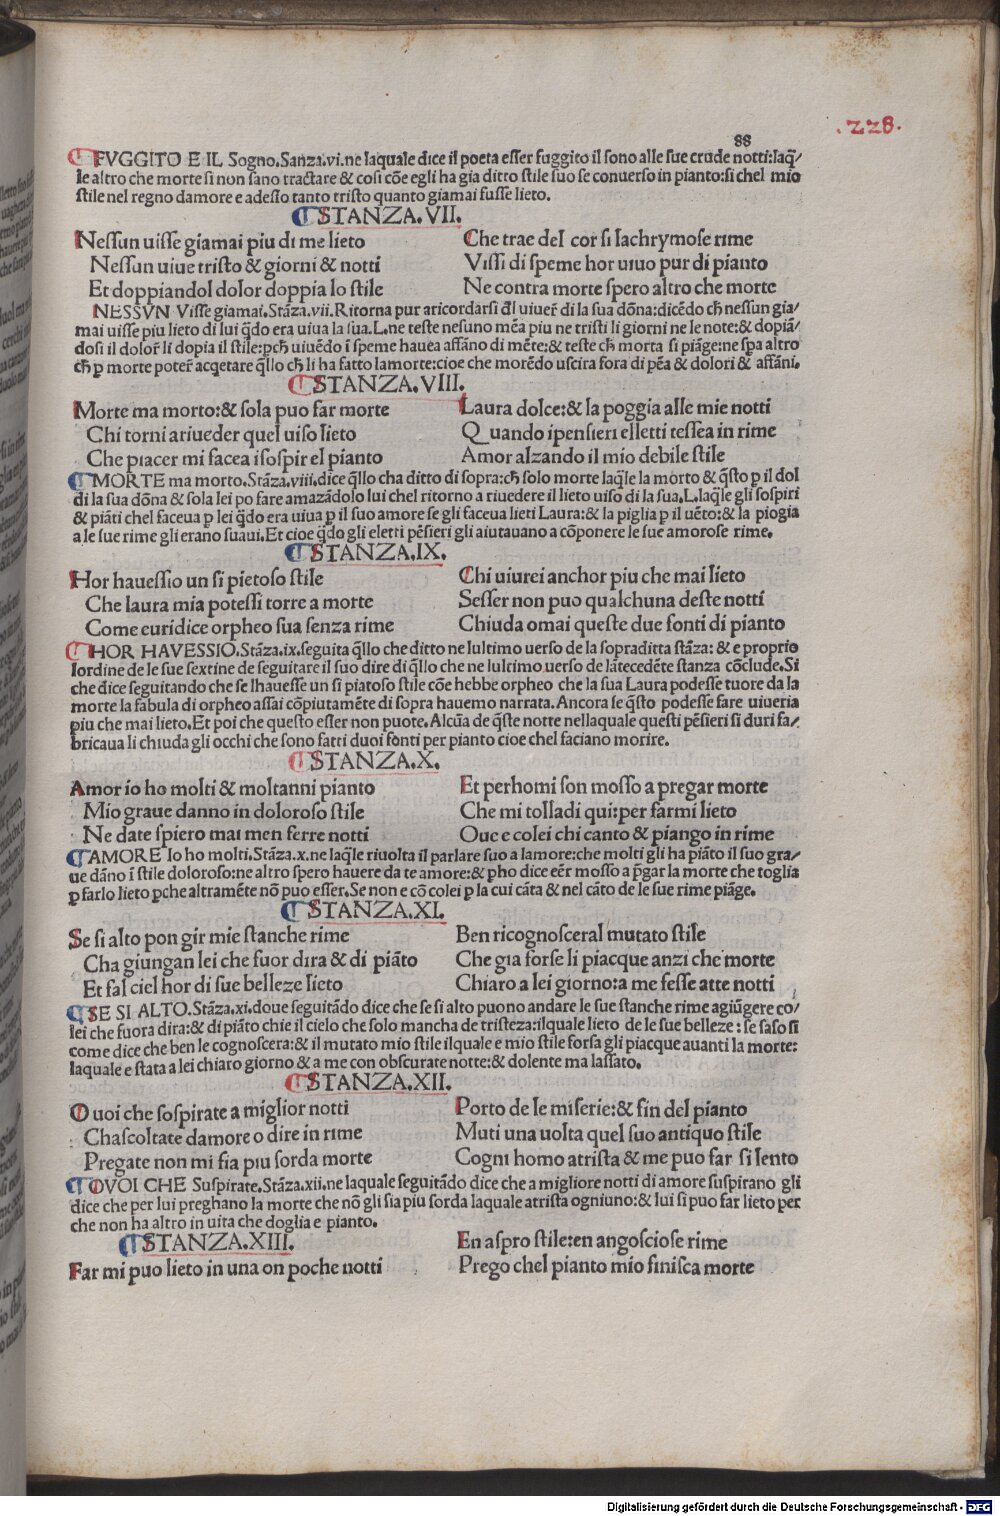 .228.
88
FVGGITO E IL Sogno.Sanza.vi.ne laquale dice il poeta esser fuggito il sono alle sue crude notti:laq̃/
le altro che morte si non sano tractare & cosi cõe egli ha gia ditto stile suo se conuerso in pianto:si chel mio
stile nel regno damore e adesso tanto tristo quanto giamai fusse lieto.
STANZA.VII.
Nessun uisse giamai piu di me lieto
Nessun uiue tristo & giorni & notti
Et doppiandol dolor doppia lo stile
Che trae del cor si lachrymose rime
Vissi di speme hor uiuo pur di pianto
Ne contra morte spero altro che morte
NESSVN Visse giamai.Stãza.vii.Ritorna pur aricordarsi đl uiuer̃ di la sua dõna:dicẽdo cħ nessun gia/
mai uisse piu lieto di lui q̃do era uiua la sua.L.ne teste nesuno mẽa piu ne tristi li giorni ne le note:& dopiã/
dosi il dolor̃ li dopia il stile:pcħ uiuẽdo ĩ speme hauea affãno di mẽte:& teste cħ morta si piãge:ne spa altro
cħ ꝑ morte poter̃ acq̃etare q̃llo cħ li ha fatto lamorte:cioe che morẽdo uscira fora di pẽa & dolori & affãni.
STANZA.VIII.
Morte ma morto:& sola puo far morte
Chi torni ariueder quel uiso lieto
Che piacer mi facea isospir el pianto
Laura dolce:& la poggia alle mie notti
Quando ipensieri elletti tessea in rime
Amor alzando il mio debile stile
MORTE ma morto.Stãza.viii.dice q̃llo cha ditto di sopra:cħ solo morte laq̃le la morto & q̃sto ꝑ il dol
di la sua dõna & sola lei po fare amazãdolo lui chel ritorno a riuedere il lieto uiso di la sua.L.laq̃le gli sospiri
& piãti chel faceua ꝑ lei q̃do era uiua ꝑ il suo amore se gli faceua lieti Laura:& la piglia ꝑ il uẽto:& la piogia
a le sue rime gli erano suaui.Et cioe q̃do gli eletti pẽsieri gli aiutauano a cõponere le sue amorose rime.
STANZA.IX.
Hor hauessio un si pietoso stile
Che laura mia potessi torre a morte
Come euridice orpheo sua senza rime
Chi uiurei anchor piu che mai lieto
Sesser non puo qualchuna deste notti
Chiuda omai queste due fonti di pianto
HOR HAVESSIO.Stãza.ix.seguita q̃llo che ditto ne lultimo uerso de la sopraditta stãza:& e proprio
lordine de le sue sextine de seguitare il suo dire di q̃llo che ne lultimo uerso de lãtecedẽte stanza cõclude.Si
che dice seguitando che se lhauesse un si piatoso stile cõe hebbe orpheo che la sua Laura podesse tuore da la
morte la fabula di orpheo assai cõpiutamẽte di sopra hauemo narrata.Ancora se q̃sto podesse fare uiueria
piu che mai lieto.Et poi che questo esser non puote.Alcũa de q̃ste notte nellaquale questi pẽsieri si duri fa/
bricaua li chiuda gli occhi che sono fatti duoi fonti per pianto cioe chel faciano morire.
STANZA.X.
Amor io ho molti & moltanni pianto
Mio graue danno in doloroso stile
Ne da te spiero mai men ferre notti
Et perhomi son mosso a pregar morte
Che mi tolladi qui:per farmi lieto
Oue e colei chi canto & piango in rime
AMORE Io ho molti.Stãza.x.ne laq̃le riuolta il parlare suo a lamore:che molti gli ha piãto il suo gra/
ue dãno ĩ stile doloroso:ne altro spero hauere da te amore:& ꝑho dice eẽr mosso a p̃gar la morte che toglia
ꝑ farlo lieto pche altramẽte nõ puo esser.Se non e cõ colei ꝑ la cui cãta & nel cãto de le sue rime piãge.
STANZA.XI.
Se si alto pon gir mie stanche rime
Cha giungan lei che fuor dira & di piãto
Et fal ciel hor di sue belleze lieto
Ben ricognosceral mutato stile
Che gia forse li piacque anzi che morte
Chiaro a lei giorno:a me fesse atte notti
SE SI ALTO.Stãza.xi.doue seguitãdo dice che se si alto puono andare le sue stanche rime agiũgere co/
lei che fuora dira:& di piãto chie il cielo che solo mancha de tristeza:ilquale lieto de le sue belleze : se faso si
come dice che ben le cognoscera:& il mutato mio stile ilquale e mio stile forsa gli piacque auanti la morte:
laquale e stata a lei chiaro giorno & a me con obscurate notte:& dolente ma lassato.
STANZA.XII.
O uoi che sospirate a miglior notti
Chascoltate damore o dire in rime
Pregate non mi fia piu sorda morte
Porto de le miserie:& fin del pianto
Muti una uolta quel suo antiquo stile
Cogni homo atrista & me puo far si lento
OVOI CHE Suspirate.Stãza.xii.ne laquale seguitãdo dice che a migliore notti di amore suspirano gli
dice che per lui preghano la morte che nõ gli sia piu sorda laquale atrista ogniuno:& lui si puo far lieto per
che non ha altro in uita che doglia e pianto.
STANZA.XIII.
Far mi puo lieto in una on poche notti
En aspro stile:en angosciose rime
Prego chel pianto mio finisca morte
Digitalisierung gefördert durch die Deutsche Forschungsgemeinschaft - DFG